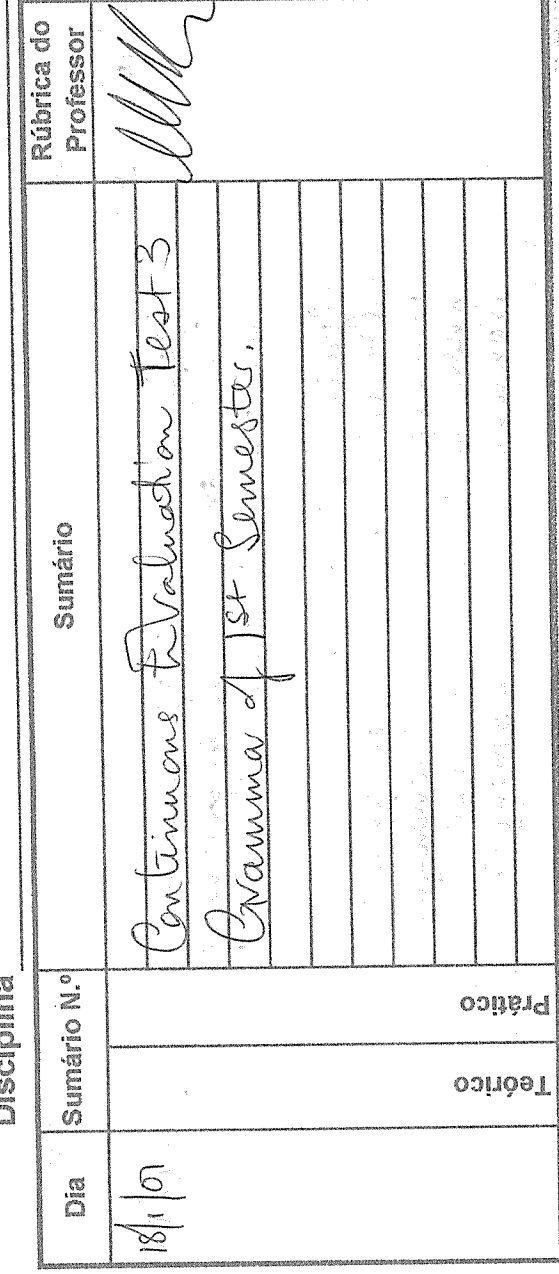 Disciplina
Dia
Sumário N.º
Sumário
Rúbrica do
Professor
18/1/01
Teórico
Prático
Continuous Evaluation Test 3
Gramma of 1st Semester.